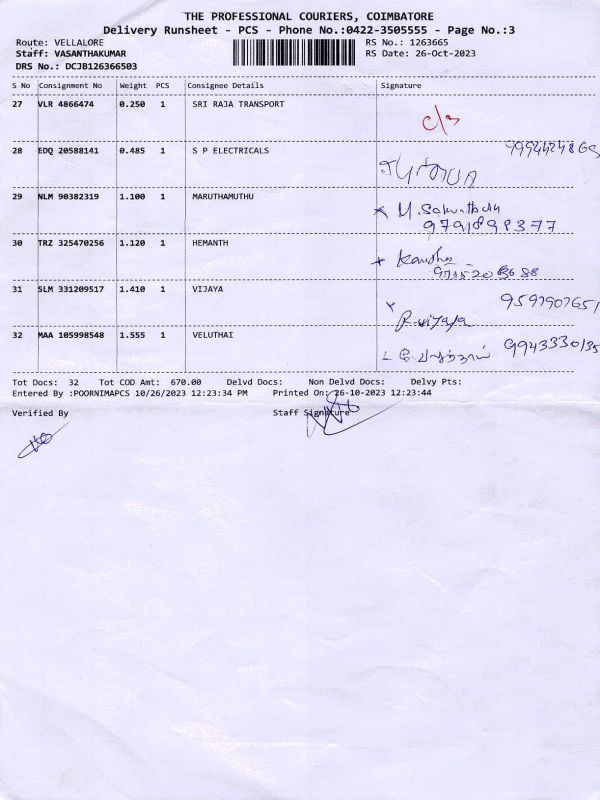 THE PROFESSIONAL COURIERS, COIMBATORE
Delivery Runsheet - PCS - Phone No.:0422-3505555 - Page No.:3
Route: VELLALORE RS No.: 1263665
Staff: VASANTHAKUMAR RS Date: 26-Oct-2023
DRS No.: DCJB126366503
S No Consignment No Weight PCS Consignee Details Signature
27 VLR 4866474 0.250 1 SRI RAJA TRANSPORT
28 EDQ 20588141 0.485 1 S P ELECTRICALS
29 NLM 90382319 1.100 1 MARUTHAMUTHU
30 TRZ 325470256 1.120 1 HEMANTH
31 SLM 331209517 1.410 1 VIJAYA
R. vijaya
32 MAA 105998548 1.555 1 VELUTHAI
9943330135
Tot Docs: 32 Tot COD Amt: 670.00 Delvd Docs: Non Delvd Docs: Delvy Pts:
Entered By :POORNIMAPCS 10/26/2023 12:23:34 PM Printed On: 26-10-2023 12:23:44
Verified By Staff Signature